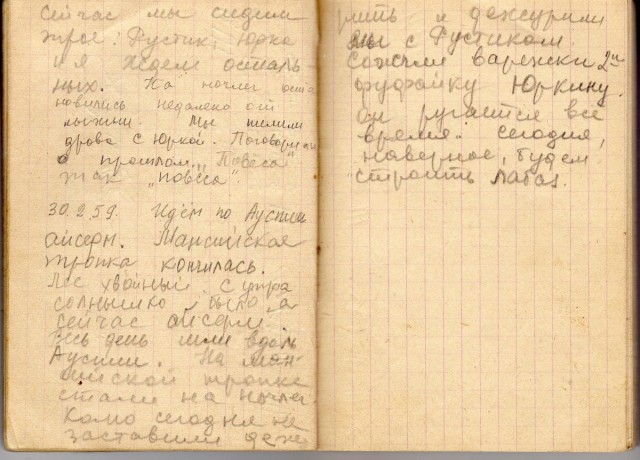 Сейчас мы сидим
трое: Рустик, Юрка
и я. Ждем осталь-
ных. На ночлег оста
новились недалеко от
лыжни. Мы пилили
дрова с Юркой. Поговорили
о прошлом... Повеса
Жак "повеса".
30.2.59. Идём по Ауспии
айсерм. Мансийская
тропка кончилась.
Лес хвойный с утра
солнышко было, а
сейчас айсерм.
Весь день шли вдоль
Ауспии. На ман-
сийской тропке
стали на ночлег
Кольо сегодня не
заставили деже
рить и дежурили
мы с Рустиком.
Сожгли варежки 2ую
фуфайку Юркину.
Он ругается всё
время. Сегодня,
наверное, будем
строить лабаз.